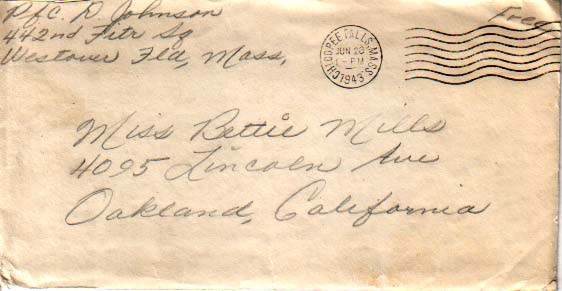 Pfc. D. Johnson
442nd Fitr Sq
Westover Fld, Mass,
Free
CHICOPEE FALLS, MASS.
JUN 28
1-PM
1943
Miss Bettie Mills
4095 Lincoln Ave
Oakland, California